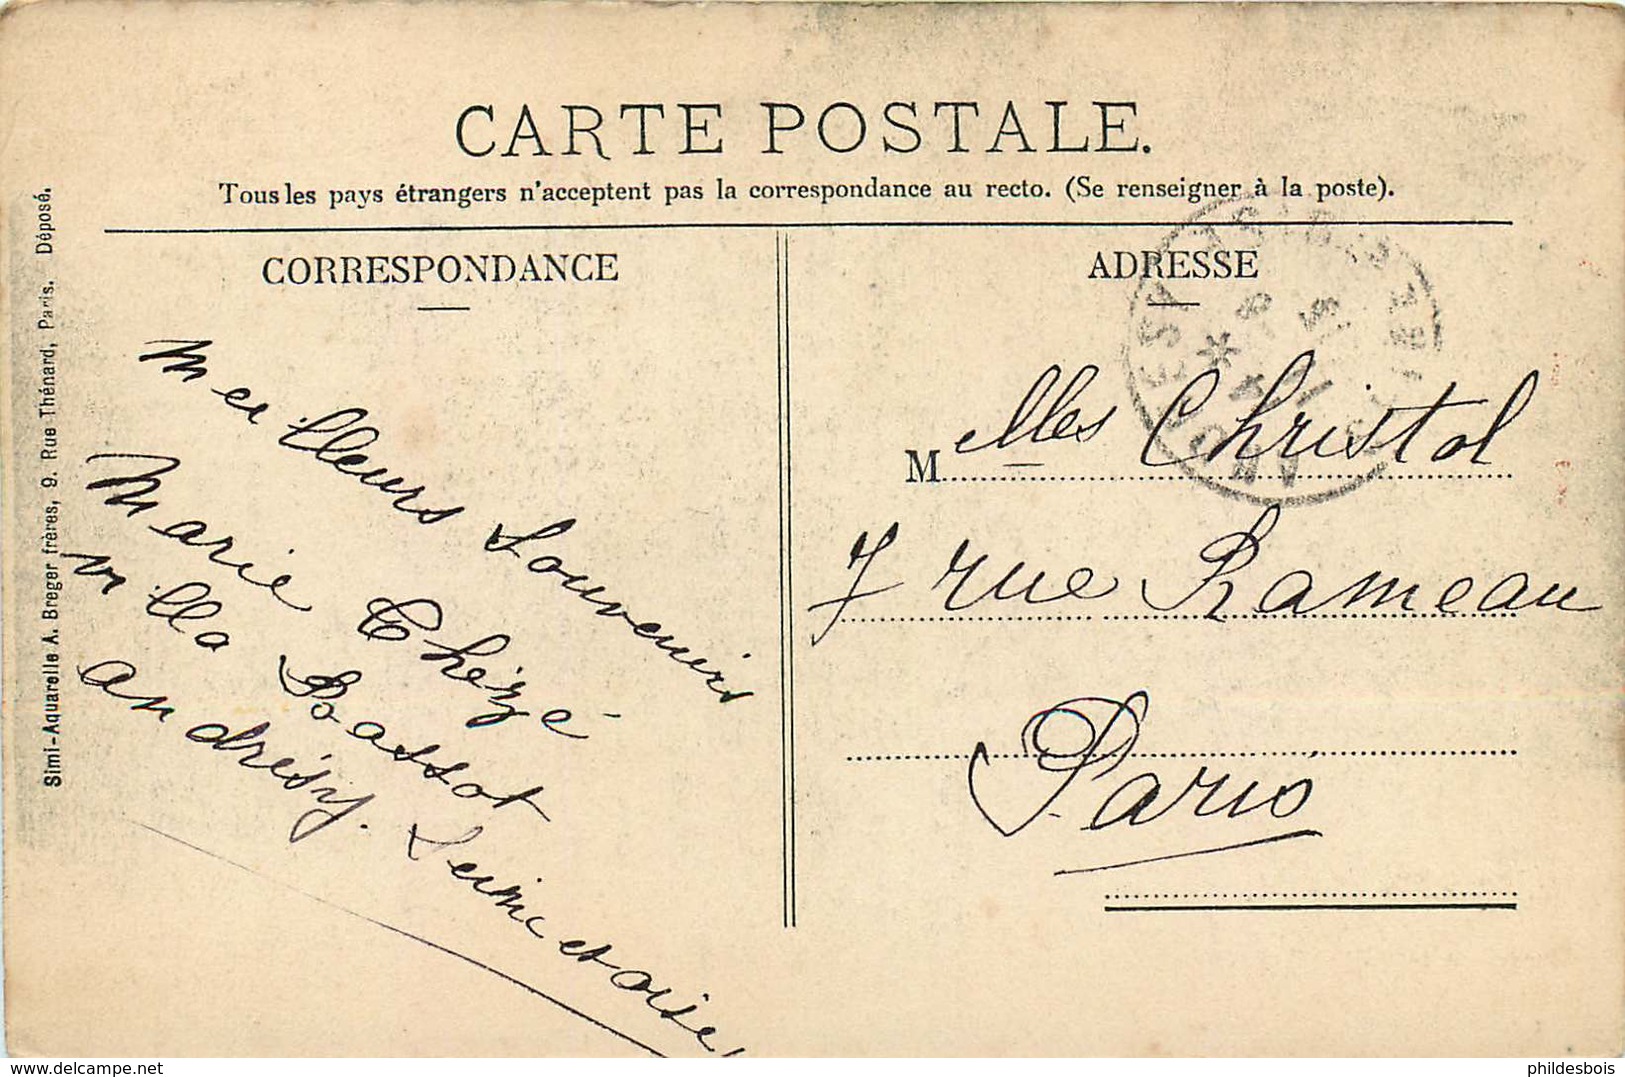 CARTE POSTALE.
Tous les pays étrangers n'acceptent pas la correspondance au recto. (Se renseigner à la poste).
Simi-Aquarelle A. Breger frères, 9. Rue Thénard, Paris. Déposé.
CORRESPONDANCE
Meilleurs Souvenirs
Marie Thézé
villa Bassot
andrésy. Seine et oise
ADRESSE
M elles Christol
7 rue Rameau
Paris
www.delcampe.net
phildesbois